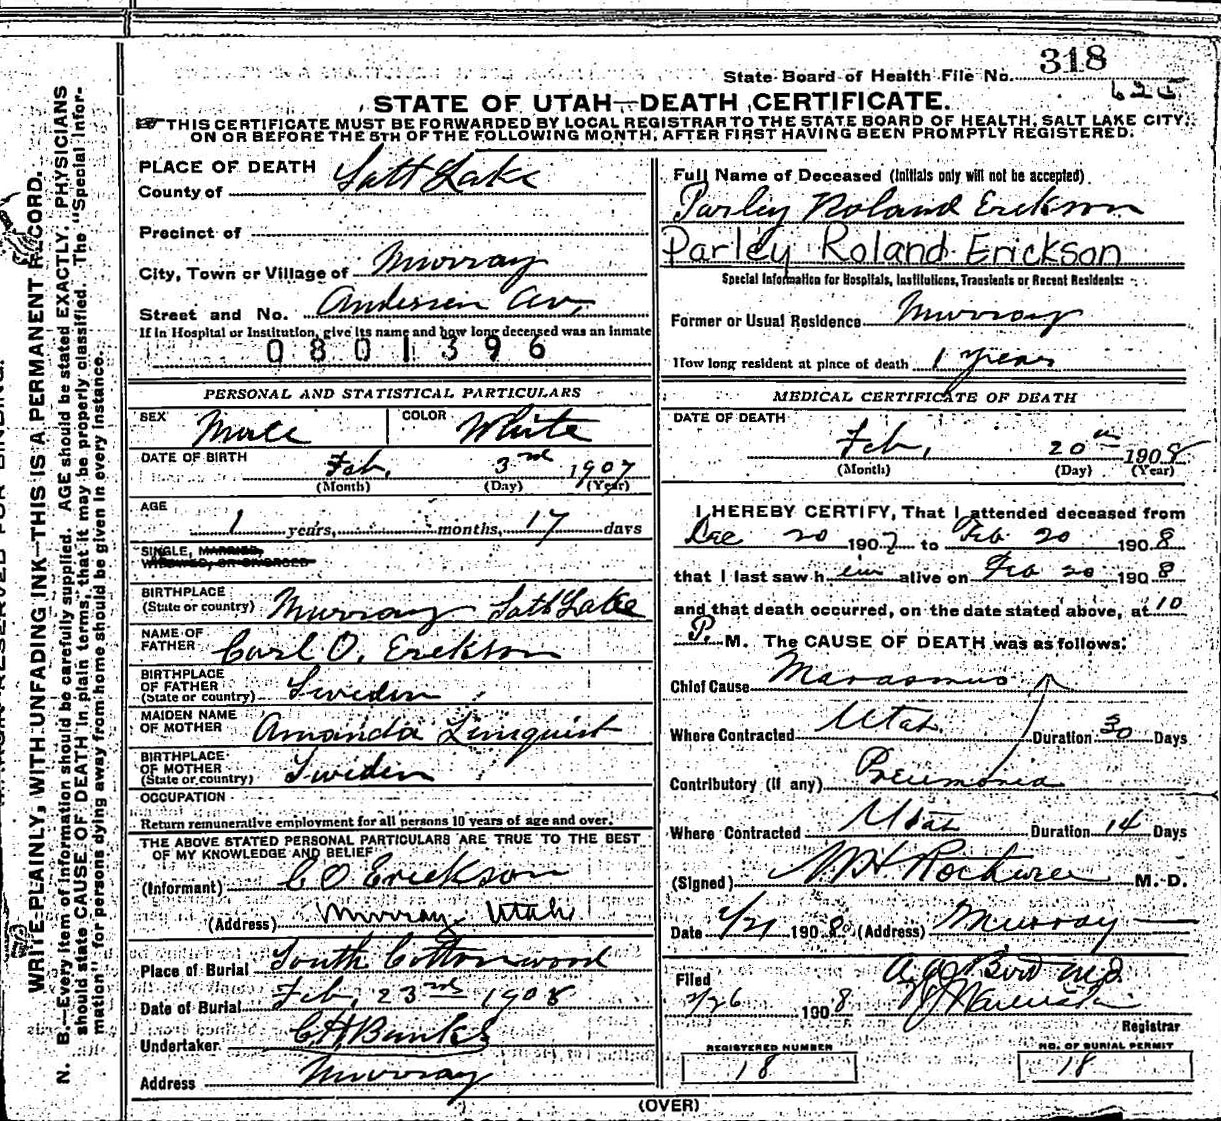 State Board of Health File No. 318
625
STATE OF UTAH—DEATH CERTIFICATE.
THIS CERTIFICATE MUST BE FORWARDED BY LOCAL REGISTRAR TO THE STATE BOARD OF HEALTH, SALT LAKE CITY,
ON OR BEFORE THE 5TH OF THE FOLLOWING MONTH, AFTER FIRST HAVING BEEN PROMPTLY REGISTERED.
WRITE PLAINLY, WITH UNFADING INK—THIS IS A PERMANENT RECORD.
N. B.—Every item of information should be carefully supplied. AGE should be stated EXACTLY. PHYSICIANS
should state CAUSE OF DEATH in plain terms, that it may be properly classified. The "Special Infor-
mation" for persons dying away from home should be given in every instance.
PLACE OF DEATH
County of Salt Lake
Precinct of
City, Town or Village of Murray
Street and No. Andersen Av,
If in Hospital or Institution, give its name and how long deceased was an inmate
0801396
PERSONAL AND STATISTICAL PARTICULARS
SEX Male COLOR White
DATE OF BIRTH Feb, 3rd 1907
(Month) (Day) (Year)
AGE
1 years, months, 17 days
SINGLE, MARRIED,
WIDOWED, OR DIVORCED
BIRTHPLACE
(State or country) Murray Salt Lake
NAME OF
FATHER Carl O. Erickson
BIRTHPLACE
OF FATHER
(State or country) Sweden
MAIDEN NAME
OF MOTHER Amanda Linquist
BIRTHPLACE
OF MOTHER
(State or country) Sweden
OCCUPATION
Return remunerative employment for all persons 10 years of age and over.
THE ABOVE STATED PERSONAL PARTICULARS ARE TRUE TO THE BEST
OF MY KNOWLEDGE AND BELIEF
(Informant) C O Erickson
(Address) Murray Utah
Place of Burial South Cottonwood
Date of Burial Feb, 23rd 1908
Undertaker C H Banks
Address Murray
Full Name of Deceased (Initials only will not be accepted)
Parley Roland Erickson
Parley Roland Erickson
Special Information for Hospitals, Institutions, Transients or Recent Residents:
Former or Usual Residence Murray
How long resident at place of death 1 year
MEDICAL CERTIFICATE OF DEATH
DATE OF DEATH
Feb, 20th 1908
(Month) (Day) (Year)
I HEREBY CERTIFY, That I attended deceased from
Dec 20 1907 to Feb 20 1908
that I last saw him alive on Feb 20 1908
and that death occurred, on the date stated above, at 10
P. M. The CAUSE OF DEATH was as follows:
Chief Cause Marasmus
Where Contracted Utah Duration 30 Days
Contributory (if any) Pneumonia
Where Contracted Utah Duration 14 Days
(Signed) M. D.
Date 2/21 1908 (Address) Murray
Filed
2/26 1908
Registrar
REGISTERED NUMBER
18
NO. OF BURIAL PERMIT
18
(OVER)